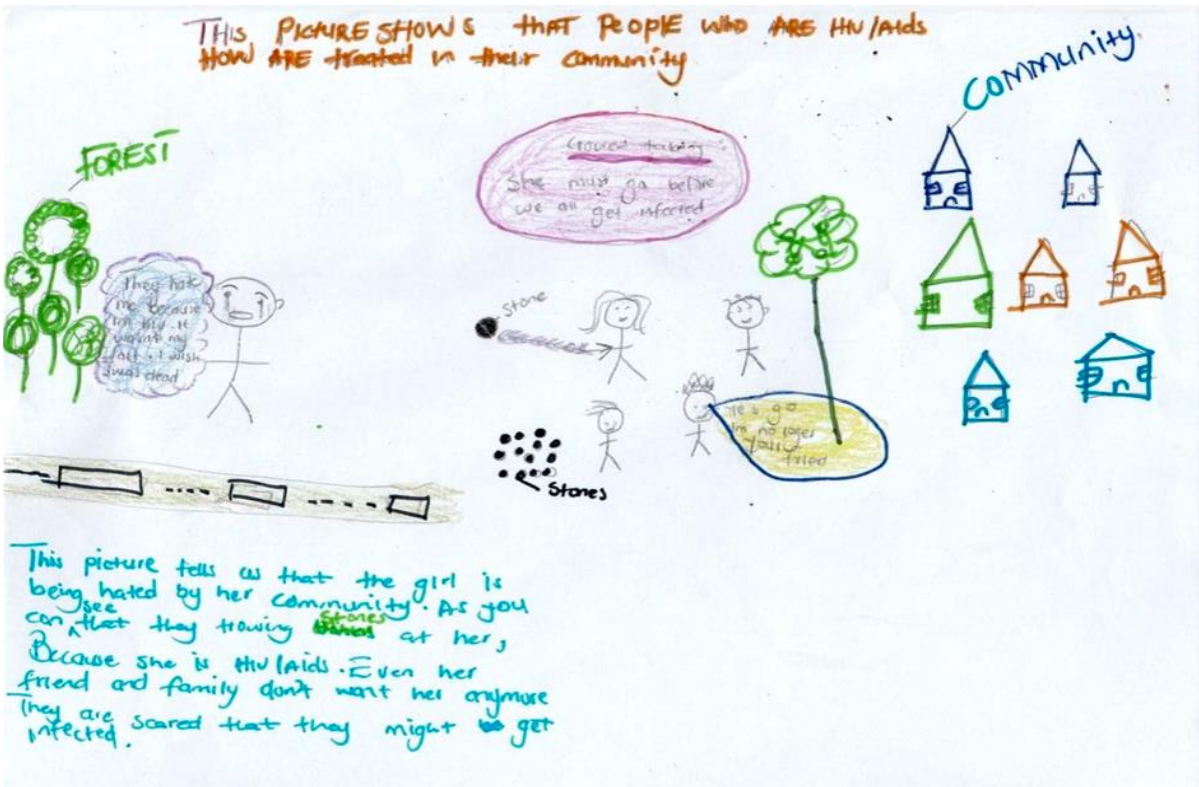 THIS PICTURE SHOWS that PEOPLE who ARE HIV/Aids
HOW ARE treated in their community
COMMUNITY
FOREST
Croued talking
She must go before
we all get infected
They hate
me because
Im HIV. It
wasnt my
falt. I wish
I was dead
Stone
Yes go
Im no loger
your
fried
Stones
This picture tells us that the girl is
being hated by her community. As you
can see that they trowing stones at her,
Because she is HIV/Aids. Even her
friend and family don't want her anymore
They are scared that they might get
infected.